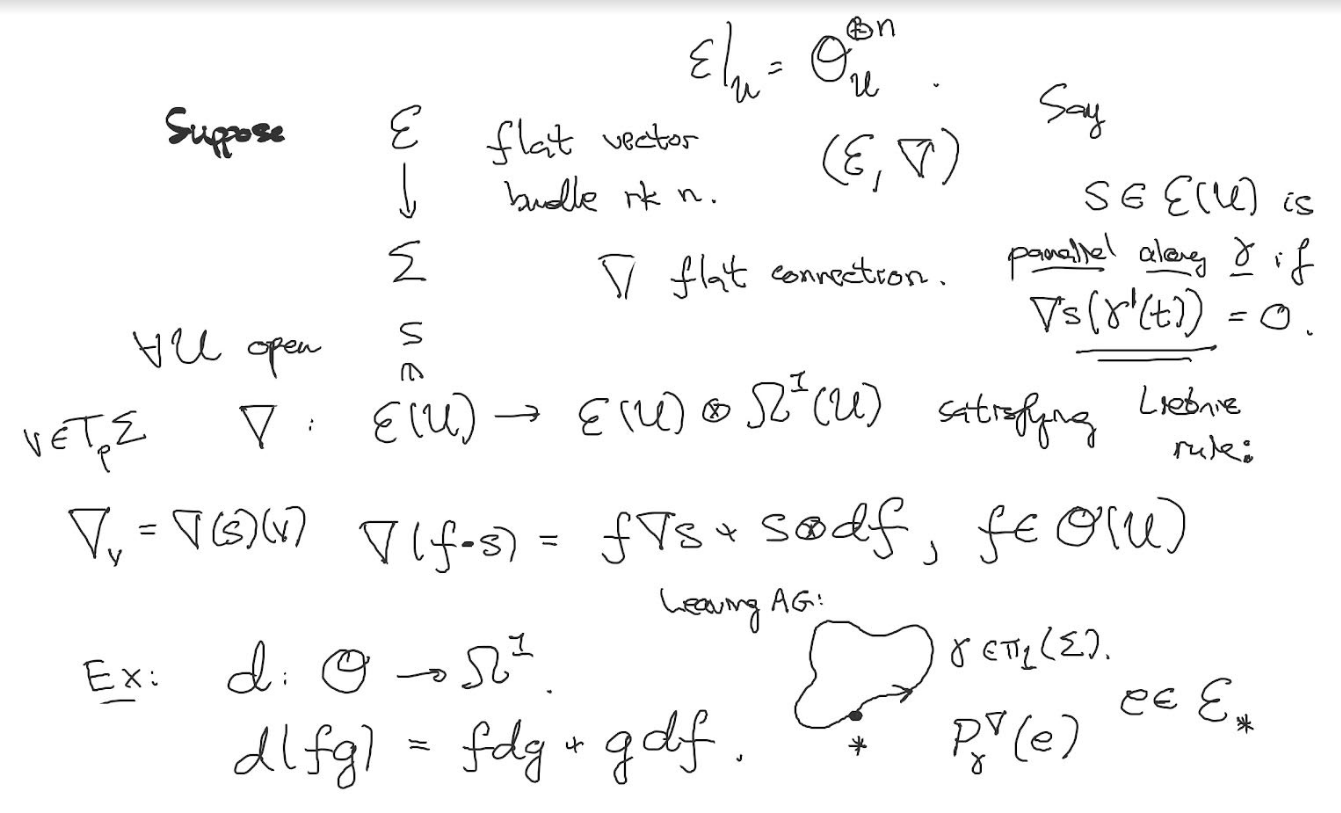 ℰ|_U = 𝒪_U^{⊕n}.
Suppose ℰ ↓ Σ flat vector bundle rk n. (ℰ, ∇)
∇ flat connection.
Say
s ∈ ℰ(U) is
parallel along γ if
∇s(γ'(t)) = 0.
∀U open
s ∈
v ∈ T_pΣ ∇ : ℰ(U) → ℰ(U) ⊗ Ω^1(U) satisfying Liebnie rule:
∇_v = ∇(s)(v) ∇(f·s) = f∇s + s⊗df, f ∈ 𝒪(U)
Leaving AG:
Ex: d: 𝒪 → Ω^1.
γ ∈ π_1(Σ).
d(fg) = fdg + gdf.
* P_γ^∇(e) e ∈ ℰ_*